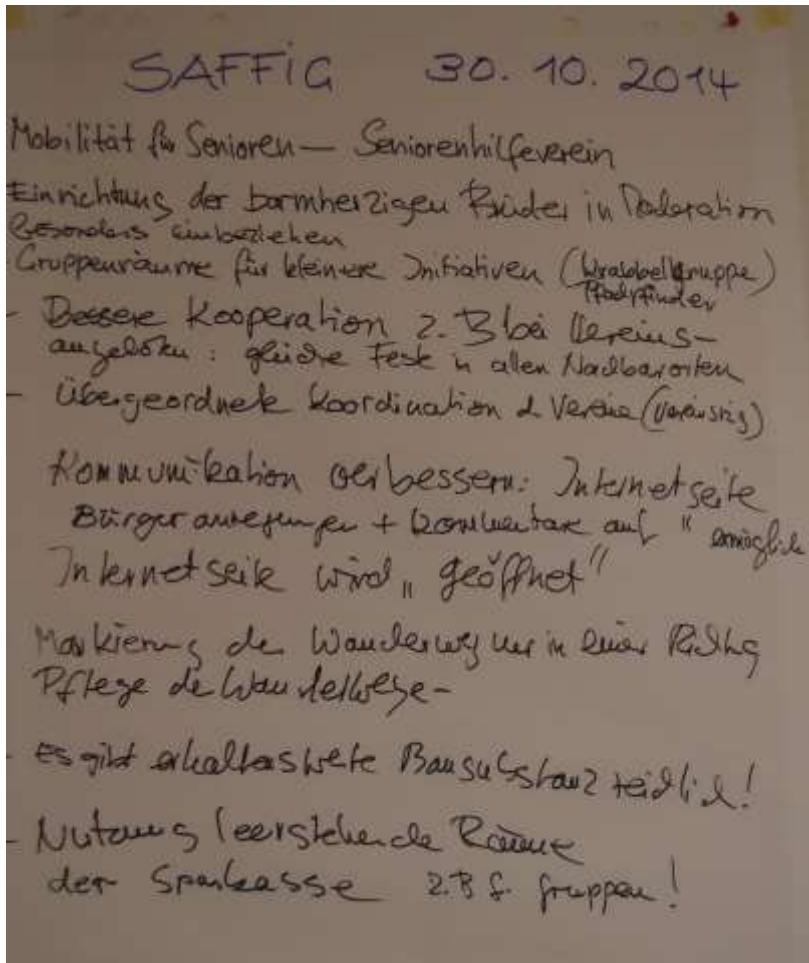 SAFFIG 30. 10. 2014
Mobilität für Senioren — Seniorenhilfeverein
Einrichtung der barmherzigen Brüder in Moderation
besonders einbeziehen
Gruppenräume für kleinere Initiativen (Krabbelgruppe)
Pfadfinder
- Bessere Kooperation z. B bei Vereins-
angeboten : gleiche Feste in allen Nachbarorten
- Übergeordnete Koordination d Vereine (Vereinsring)
Kommunikation verbessern: Internetseite
Bürgeranregungen + Kommentare auf " ermöglich
Internetseite wird „geöffnet"
Markierung der Wanderweg nur in einer Richtg
Pflege de Wanderwege -
- Es gibt erhaltenswerte Bausubstanz reichlich!
- Nutzung leerstehende Räume
der Sparkasse z.B f. Gruppen!